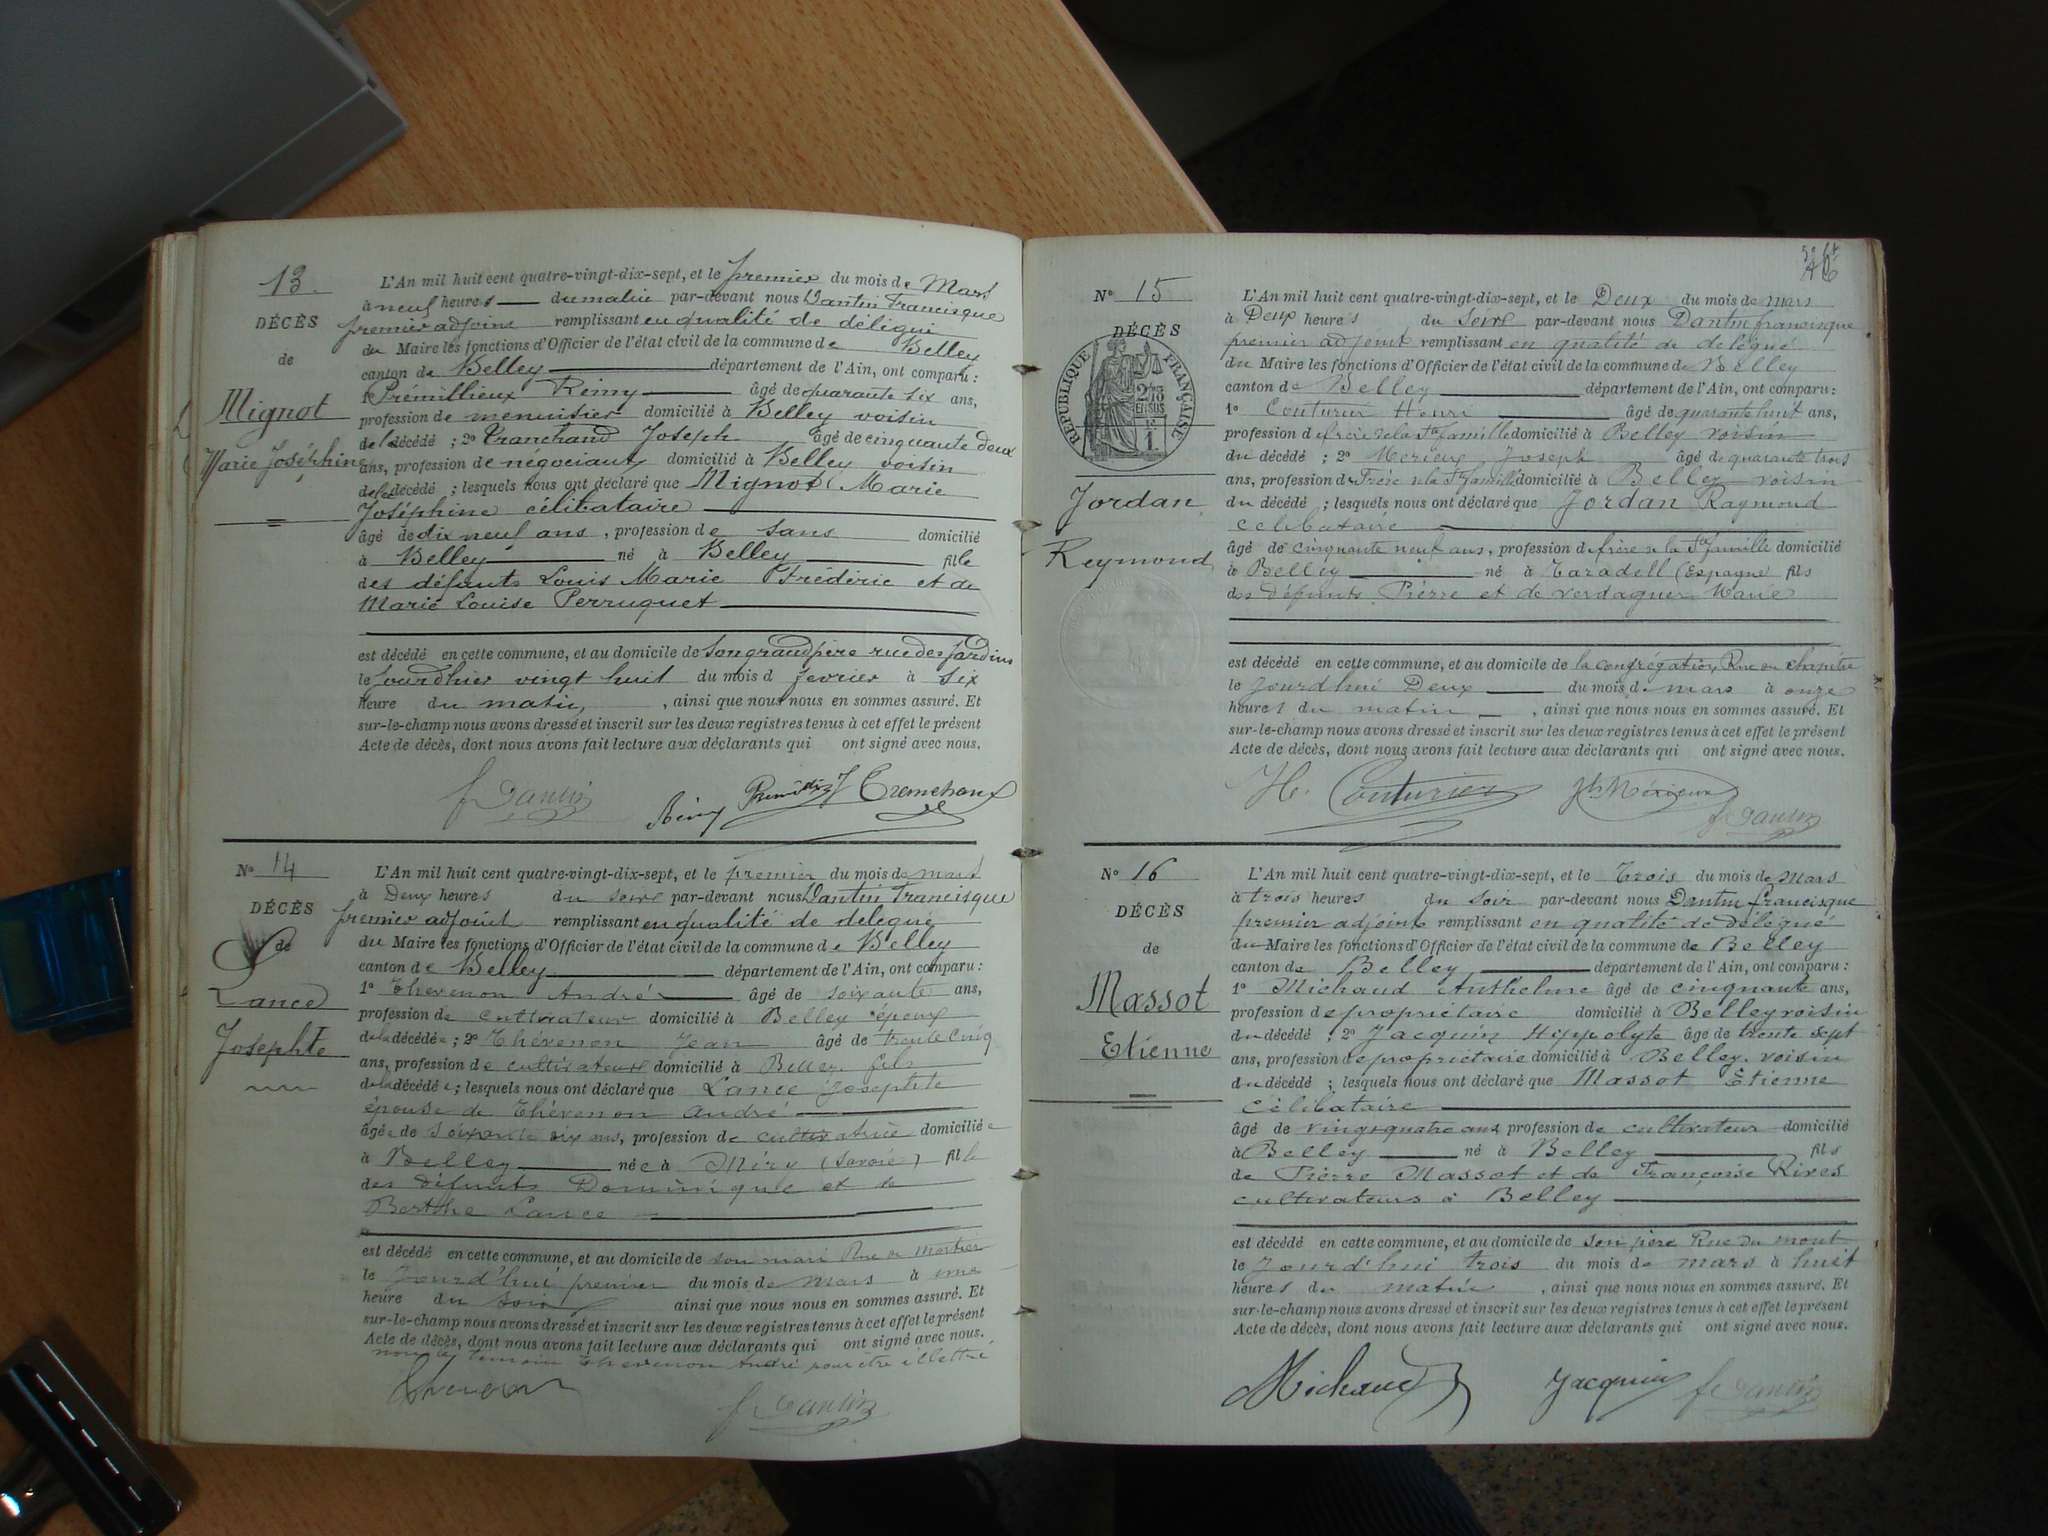 13.
DÉCÈS
de
Mignot
Marie Joséphine
L'An mil huit cent quatre-vingt-dix-sept, et le premier du mois de Mars
à neuf heures du matin par-devant nous Dantin Francisque
premier adjoint remplissant en qualité de délégué
du Maire les fonctions d'Officier de l'état civil de la commune de Belley
canton de Belley département de l'Ain, ont comparu :
1º Prémillieux Rémy âgé de quarante six ans,
profession de menuisier domicilié à Belley voisin
de la décédé ; 2º Tranchand Joseph âgé de cinquante deux
ans, profession de négociant domicilié à Belley voisin
de la décédé ; lesquels nous ont déclaré que Mignot Marie
Joséphine célibataire
âgé de dix neuf ans, profession de sans domicilié
à Belley né à Belley fille
des défunts Louis Marie Frédéric et de
Marie Louise Perruquet
est décédé en cette commune, et au domicile de son grand père rue des Jardins
le jourdhier vingt huit du mois d février à six
heure du matin, ainsi que nous nous en sommes assuré. Et
sur-le-champ nous avons dressé et inscrit sur les deux registres tenus à cet effet le présent
Acte de décès, dont nous avons fait lecture aux déclarants qui ont signé avec nous.
f Dantin Rémy
Nº 14
DÉCÈS
de
Lance
Josephte
L'An mil huit cent quatre-vingt-dix-sept, et le premier du mois de mars
à Deux heures du soire par-devant nous Dantin Francisque
premier adjoint remplissant en qualité de délégué
du Maire les fonctions d'Officier de l'état civil de la commune de Belley
canton de Belley département de l'Ain, ont comparu :
1º Thévenon André âgé de soixante ans,
profession de cultivateur domicilié à Belley époux
de la décédée ; 2º Thévenon Jean âgé de trente cinq
ans, profession de cultivateur domicilié à Belley fils
de la décédée ; lesquels nous ont déclaré que Lance Josephte
épouse de Thévenon André
âgée de soixante six ans, profession de cultivatrice domiciliée
à Belley née à (Savoie) fille
des défunts Dominique et de
Berthe Lance
est décédé en cette commune, et au domicile de son mari Rue du Mortier
le Jourd'hui premier du mois de mars à une
heure du soir ainsi que nous nous en sommes assuré. Et
sur-le-champ nous avons dressé et inscrit sur les deux registres tenus à cet effet le présent
Acte de décès, dont nous avons fait lecture aux déclarants qui ont signé avec nous.
non le témoin Thévenon André pour être illettré
Thevenon f Dantin
Nº 15
DÉCÈS
RÉPUBLIQUE FRANÇAISE
Jordan
Reymond
L'An mil huit cent quatre-vingt-dix-sept, et le Deux du mois de mars
à Deux heures du soire par-devant nous Dantin francisque
premier adjoint remplissant en qualité de délégué
du Maire les fonctions d'Officier de l'état civil de la commune de Belley
canton de Belley département de l'Ain, ont comparu :
1º Couturier Henri âgé de quarante huit ans,
profession de frère de la Ste famille domicilié à Belley voisin
du décédé ; 2º Merieux Joseph âgé de quarante trois
ans, profession de Frère de la Ste famille domicilié à Belley voisin
du décédé ; lesquels nous ont déclaré que Jordan Raymond
célibataire
âgé de cinquante neuf ans, profession de frère de la Ste famille domicilié
à Belley né à Taradell (Espagne fils
des défunts Pierre et de Verdaguer Marie
est décédé en cette commune, et au domicile de la congrégation, Rue du chapitre
le jourd'hui Deux du mois de mars à onze
heures du matin, ainsi que nous nous en sommes assuré. Et
sur-le-champ nous avons dressé et inscrit sur les deux registres tenus à cet effet le présent
Acte de décès, dont nous avons fait lecture aux déclarants qui ont signé avec nous.
H. Couturier Jh Mérieux
f Dantin
Nº 16
DÉCÈS
de
Massot
Etienne
L'An mil huit cent quatre-vingt-dix-sept, et le Trois du mois de Mars
à trois heures du soir par-devant nous Dantin francisque
premier adjoint remplissant en qualité de délégué
du Maire les fonctions d'Officier de l'état civil de la commune de Belley
canton de Belley département de l'Ain, ont comparu :
1º Michaud Anthelme âgé de cinquante ans,
profession de propriétaire domicilié à Belley voisin
du décédé ; 2º Jacquin Hyppolyte âgé de trente sept
ans, profession de propriétaire domicilié à Belley. voisin
du décédé ; lesquels nous ont déclaré que Massot Etienne
célibataire
âgé de vingt quatre ans profession de cultivateur domicilié
à Belley né à Belley fils
de Pierre Massot et de Françoise Rives
cultivateurs à Belley
est décédé en cette commune, et au domicile de son père Rue du mont
le Jourd'hui trois du mois de mars à huit
heures du matin, ainsi que nous nous en sommes assuré. Et
sur-le-champ nous avons dressé et inscrit sur les deux registres tenus à cet effet le présent
Acte de décès, dont nous avons fait lecture aux déclarants qui ont signé avec nous.
Michaud Jacquin f Dantin